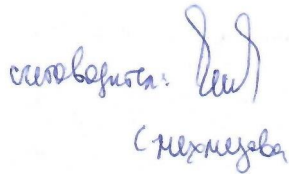 счетоводител:
С Мехмедова